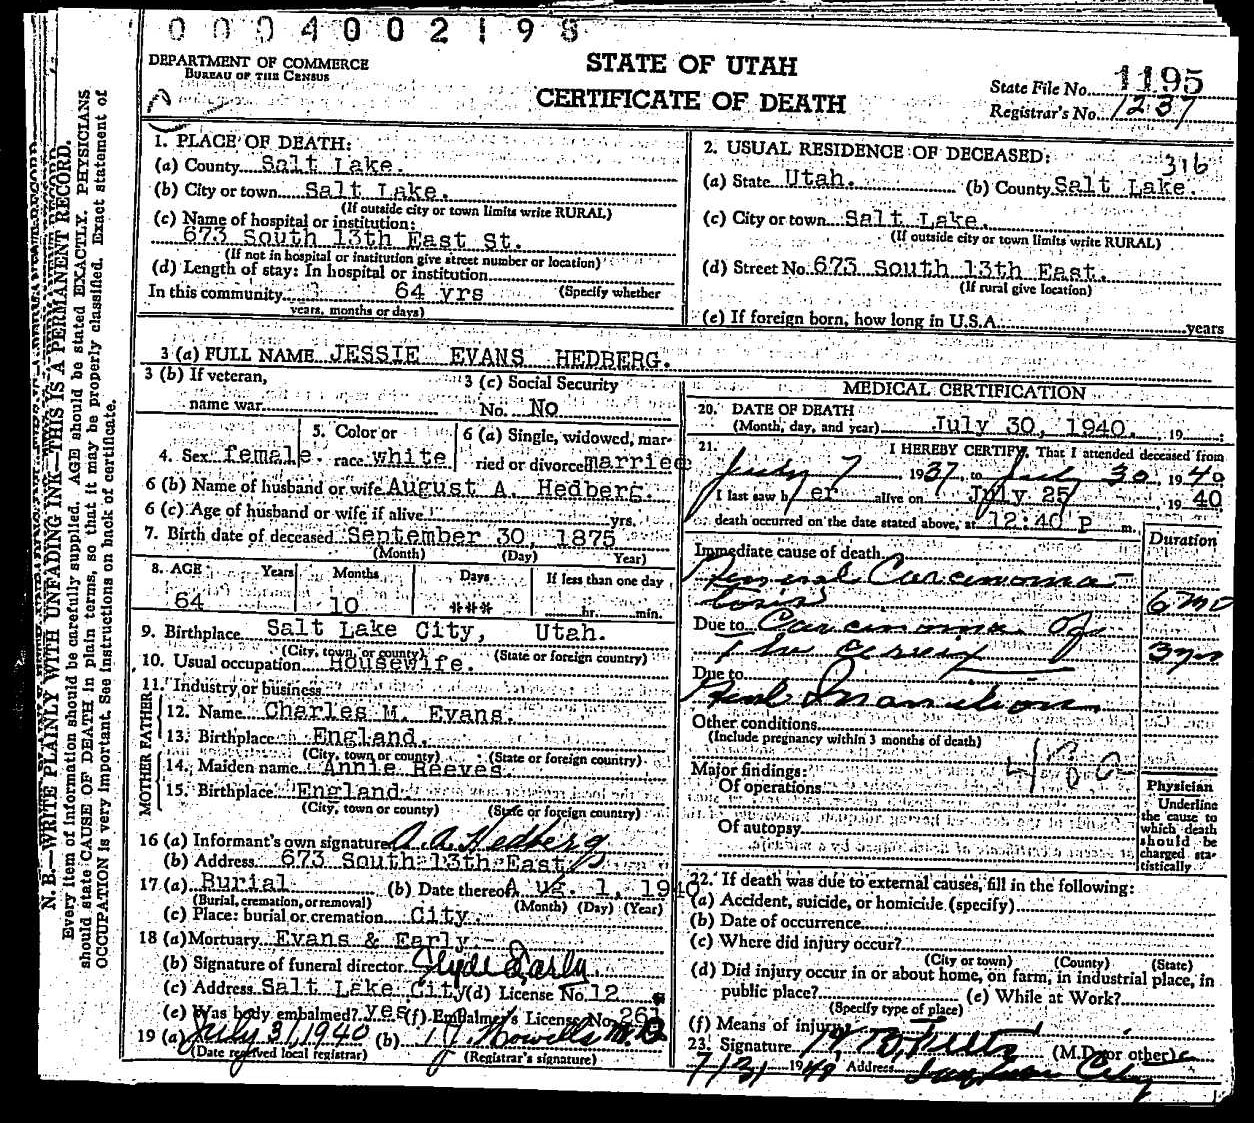 0004002198
DEPARTMENT OF COMMERCE
BUREAU OF THE CENSUS
STATE OF UTAH
CERTIFICATE OF DEATH
State File No. 1195
Registrar's No. 1237
N. B.—WRITE PLAINLY WITH UNFADING INK—THIS IS A PERMANENT RECORD.
Every item of information should be carefully supplied. AGE should be stated EXACTLY. PHYSICIANS
should state CAUSE OF DEATH in plain terms, so that it may be properly classified. Exact statement of
OCCUPATION is very important. See instructions on back of certificate.
1. PLACE OF DEATH:
(a) County Salt Lake.
(b) City or town Salt Lake.
(If outside city or town limits write RURAL)
(c) Name of hospital or institution:
673 South 13th East St.
(If not in hospital or institution give street number or location)
(d) Length of stay: In hospital or institution
In this community 64 yrs (Specify whether
years, months or days)
2. USUAL RESIDENCE OF DECEASED:
316
(a) State Utah. (b) County Salt Lake.
(c) City or town Salt Lake.
(If outside city or town limits write RURAL)
(d) Street No. 673 South 13th East.
(If rural give location)
(e) If foreign born, how long in U.S.A. years
3 (a) FULL NAME JESSIE EVANS HEDBERG.
3 (b) If veteran, 3 (c) Social Security
name war No. No
4. Sex female. 5. Color or race white 6 (a) Single, widowed, married or divorced married
6 (b) Name of husband or wife August A. Hedberg.
6 (c) Age of husband or wife if alive yrs.
7. Birth date of deceased September 30, 1875
(Month) (Day) Year)
8. AGE Years Months Days If less than one day
64 10 *** hr. min.
9. Birthplace Salt Lake City, Utah.
(City, town, or county) (State or foreign country)
10. Usual occupation Housewife.
11. Industry or business
FATHER
12. Name Charles M. Evans.
13. Birthplace England.
(City, town or county) (State or foreign country)
MOTHER
14. Maiden name Annie Reeves
15. Birthplace England
(City, town or county) (State or foreign country)
16 (a) Informant's own signature A. A. Hedberg
(b) Address 673 South 13th East
17 (a) Burial (b) Date thereof Aug. 1, 1940
(Burial, cremation, or removal) (Month) (Day) (Year)
(c) Place: burial or cremation City.
18 (a) Mortuary Evans & Early
(b) Signature of funeral director Clyde Early.
(c) Address Salt Lake City (d) License No. 12
(e) Was body embalmed? yes (f) Embalmer's License No. 261
19 (a) July 31, 1940 (b) Howells M.D.
(Date received local registrar) (Registrar's signature)
MEDICAL CERTIFICATION
20. DATE OF DEATH
(Month, day, and year) July 30, 1940. , 19 :
21. I HEREBY CERTIFY, That I attended deceased from
July 7 1937, to July 30, 1940
I last saw her alive on July 25 1940
death occurred on the date stated above, at 12:40 P m.
Duration
Immediate cause of death
General Carcinoma-
tosis 6 mo
Due to Carcinoma of
The cervix 3 yrs
Due to
Inanition
Other conditions
(Include pregnancy within 3 months of death)
48a
Major findings:
Of operations
Of autopsy
Physician
Underline
the cause to
which death
should be
charged sta-
tistically
22. If death was due to external causes, fill in the following:
(a) Accident, suicide, or homicide (specify)
(b) Date of occurrence
(c) Where did injury occur?
(City or town) (County) (State)
(d) Did injury occur in or about home, on farm, in industrial place, in
public place? (e) While at Work?
(Specify type of place)
(f) Means of injury
23. Signature (M.D. or other)
7/31 1940 Address City